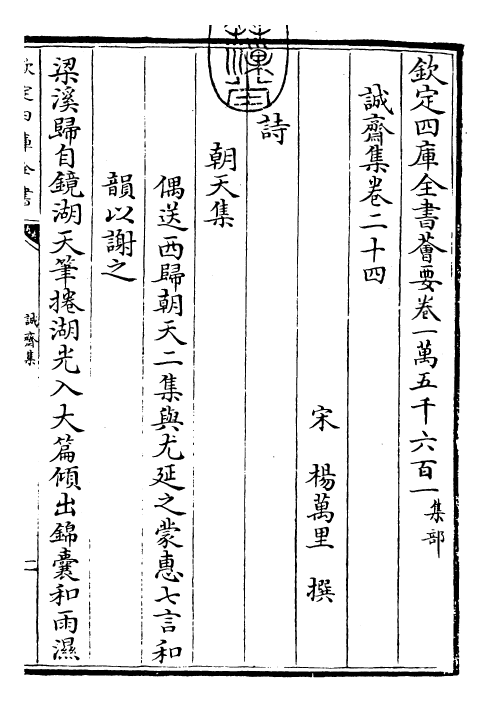 欽定四庫全書薈要卷一萬五千六百一集部
誠齋集卷二十四
宋 楊萬里 撰
詩
朝天集
偶送西歸朝天二集與尤延之蒙惠七言和
韻以謝之
梁溪歸自鏡湖天筆捲湖光入大篇傾出錦囊和雨濕
欽定四庫全書
誠齋集
二